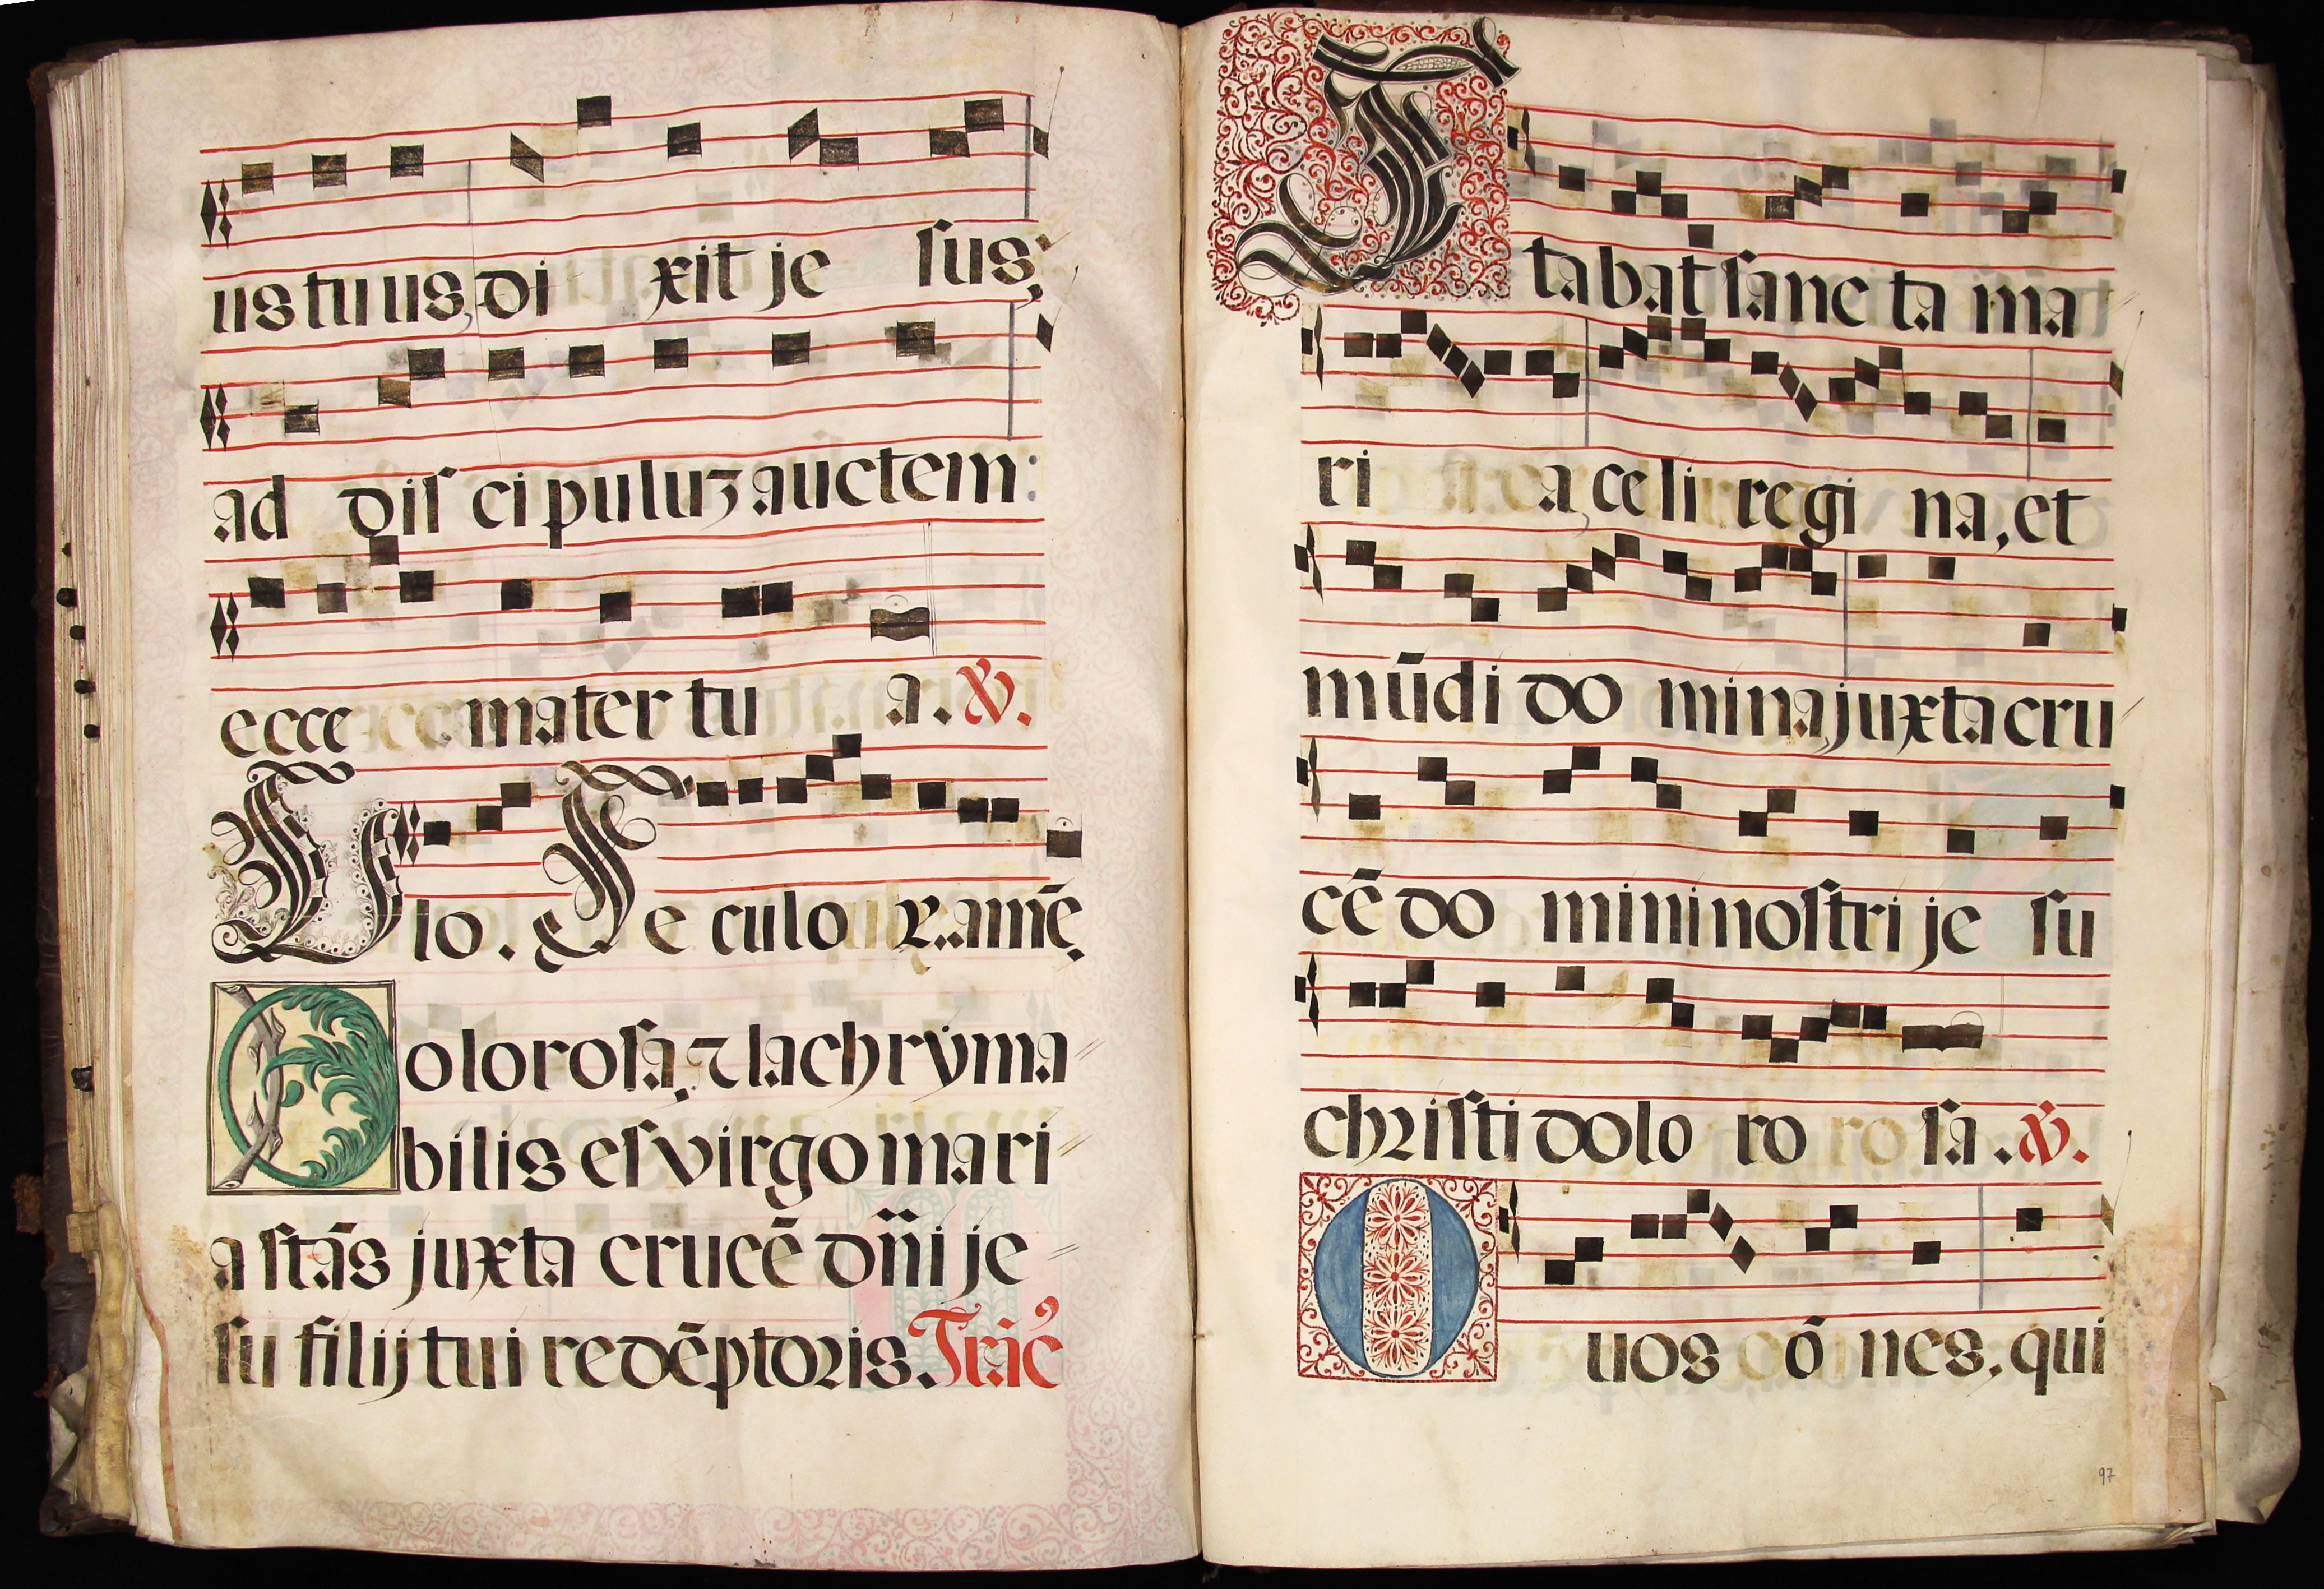 us tu us, di xit je sus,
ad dis ci puluȝ auctem:
ecce mater tu a. ℣.
Glo. Se culo ꝝ. amē.
Dolorosa, ⁊ lachryma
bilis es virgo mari
a stās juxta crucē dn̄i je
su filij tui redēptoris. Trāc
Stabat sanc ta ma
ri a, celi regi na, et
mūdi do mina, juxta cru
cē do mini nostri je su
christi dolo ro sa. ℣.
O uos ō nes, qui
97